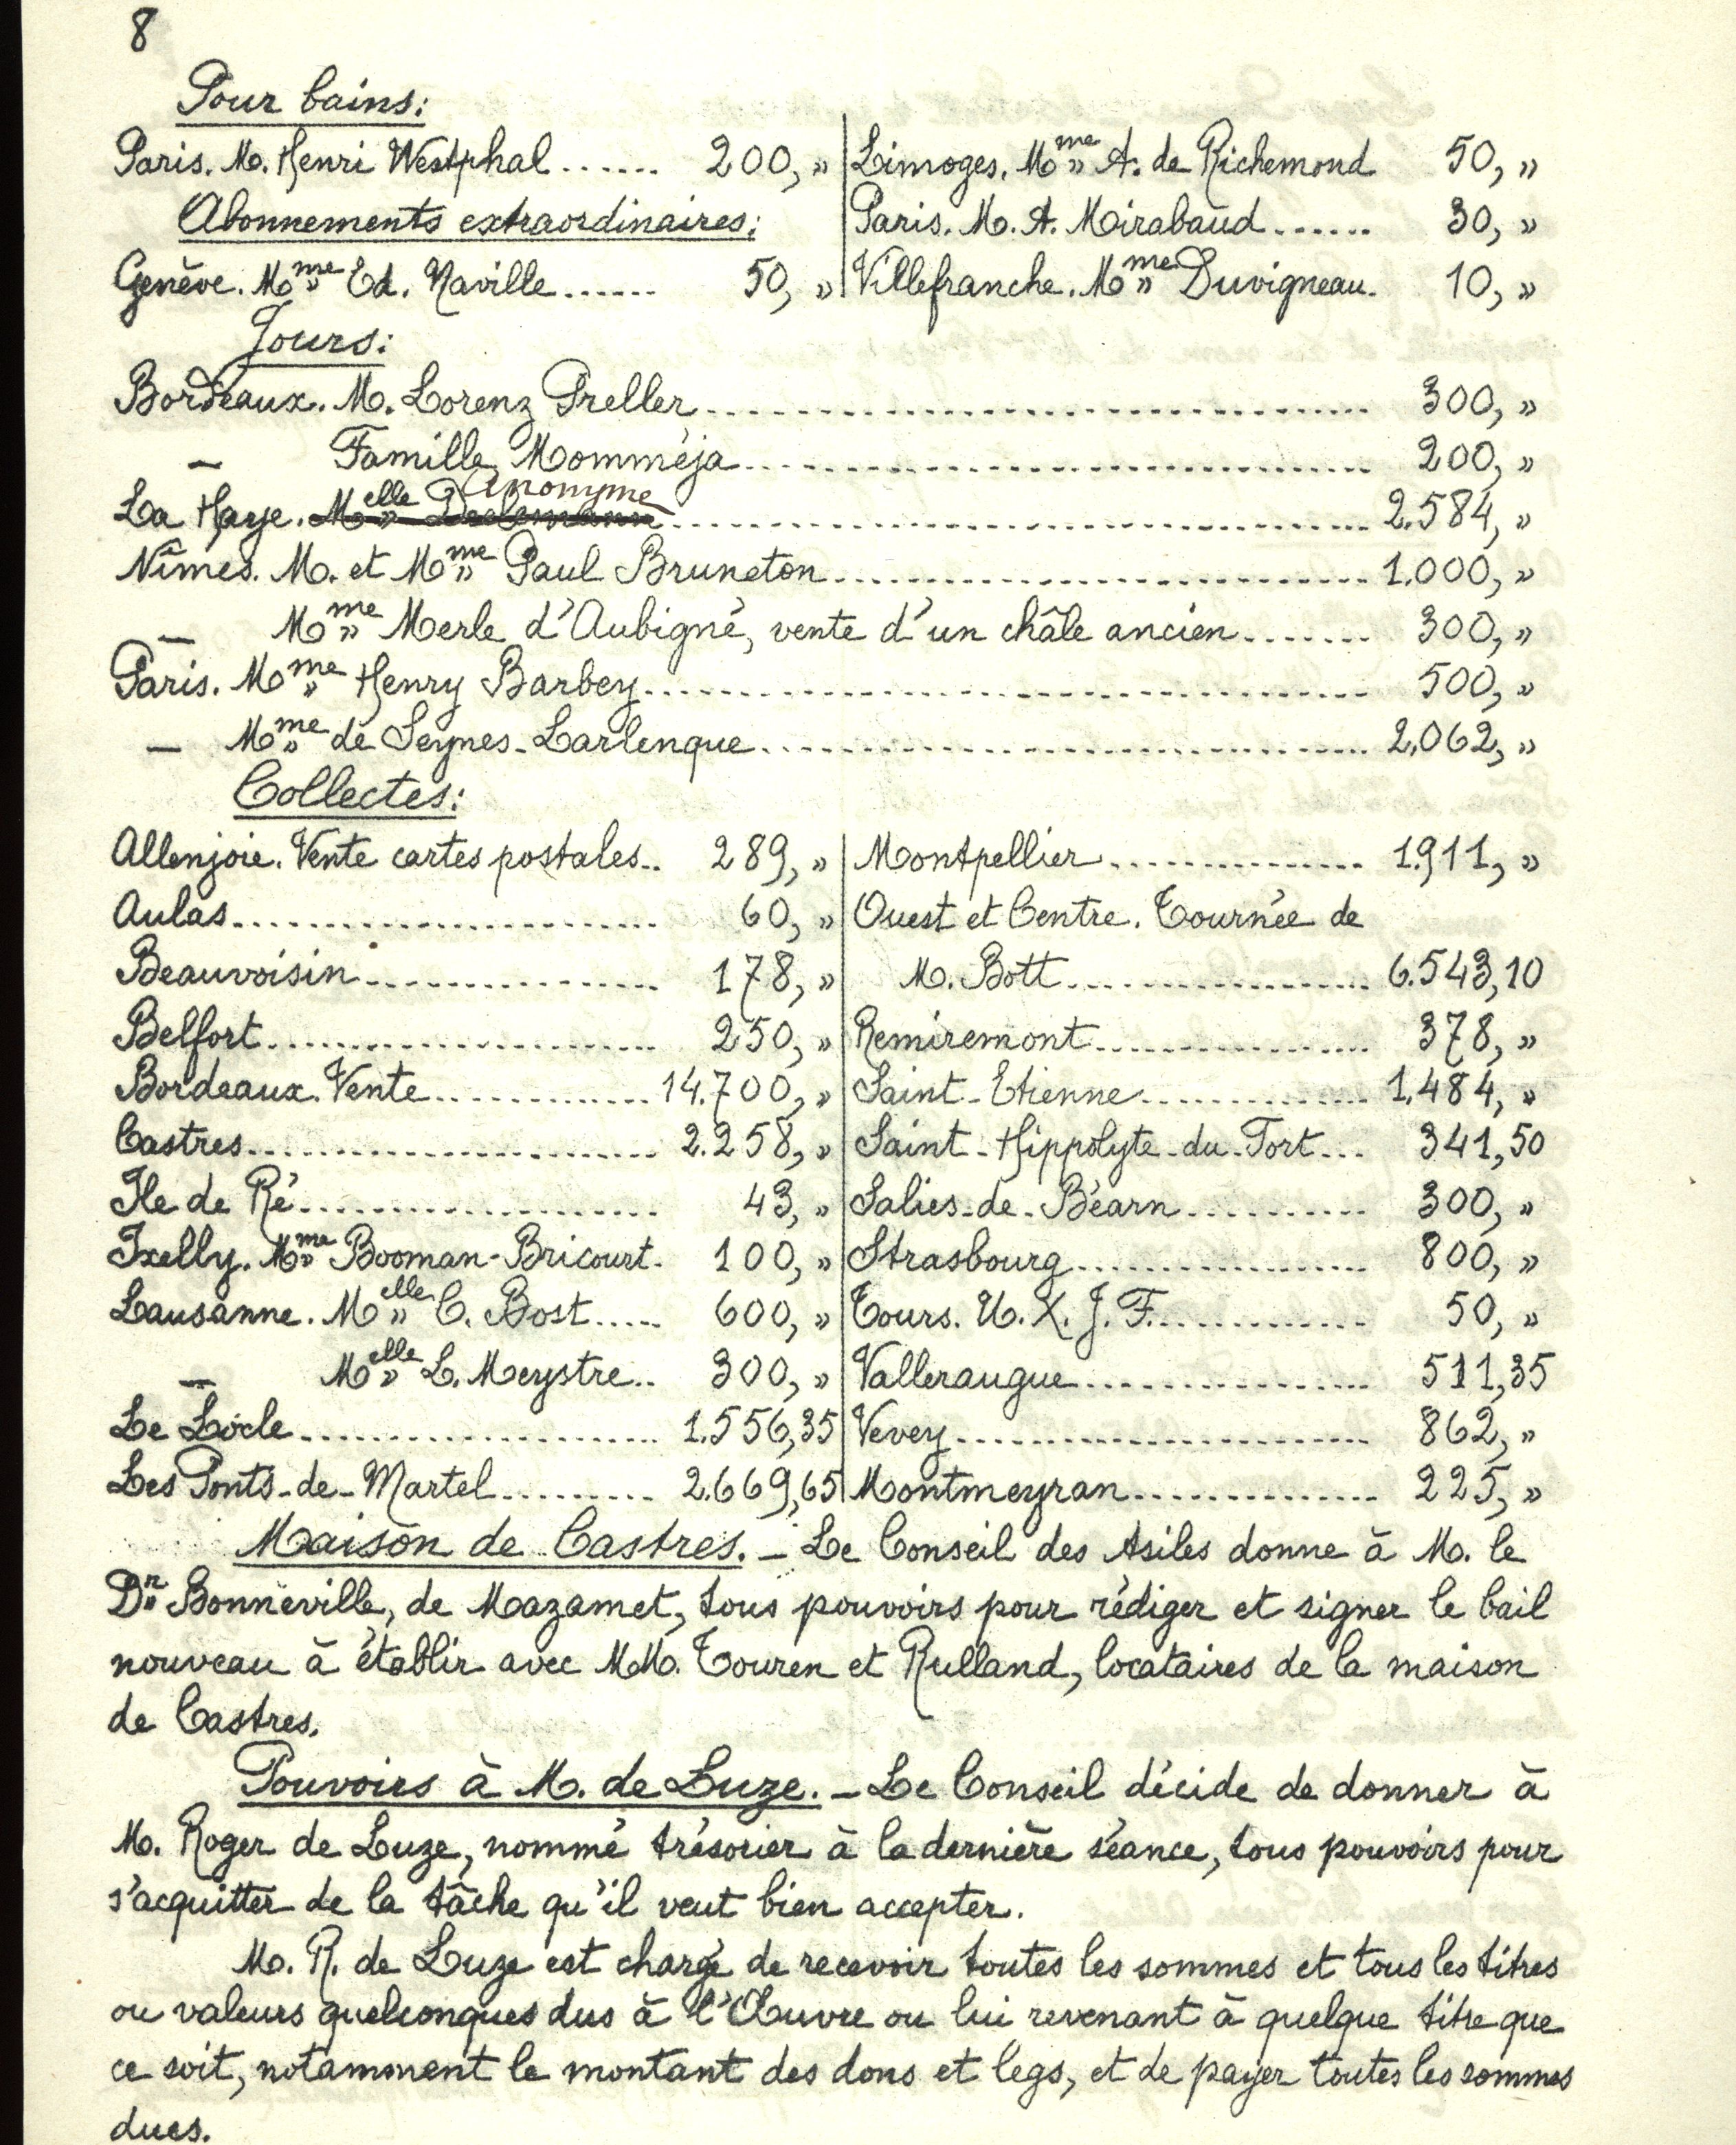 8
Pour bains:
Paris. M. Henri Westphal...... 200, »
Abonnements extraordinaires:
Genève. Mme Ed. Naville...... 50, »
Limoges. Mme A. de Richemond 50, »
Paris. M. A. Mirabaud...... 30, »
Villefranche. Mme Duvigneau. 10, »
Jours:
Bordeaux. M. Lorenz Preller 300, »
— Famille Momméja 200, »
Anonyme
La Haye. Melle 2.584, »
Nîmes. M. et Mme Paul Bruneton 1.000, »
— Mme Merle d'Aubigné, vente d'un châle ancien 300, »
Paris. Mme Henry Barbey 500, »
— Mme de Seynes-Larlenque 2.062, »
Collectes:
Allenjoie. Vente cartes postales.. 289, »
Aulas 60, »
Beauvoisin 178, »
Belfort 250, »
Bordeaux. Vente 14.700, »
Castres 2.258, »
Ile de Ré 43, »
Ixelly. Mme Booman-Bricourt. 100, »
Lausanne. Melle C. Bost 600, »
— Melle L. Meystre.. 300, »
Le Locle 1.556,35
Les Ponts-de-Martel 2.669,65
Montpellier 1.911, »
Ouest et Centre. Tournée de
M. Bott 6.543,10
Remiremont 378, »
Saint-Etienne 1.484, »
Saint-Hippolyte-du-Fort... 341,50
Salies-de-Béarn 300, »
Strasbourg 800, »
Tours. U. X. J. F. 50, »
Valleraugue 511,35
Vevey 862, »
Montmeyran 225, »
Maison de Castres. — Le Conseil des Asiles donne à M. le
Dr Bonneville, de Mazamet, tous pouvoirs pour rédiger et signer le bail
nouveau à établir avec MM. Touren et Rulland, locataires de la maison
de Castres.
Pouvoirs à M. de Luze. — Le Conseil décide de donner à
M. Roger de Luze, nommé trésorier à la dernière séance, tous pouvoirs pour
s'acquitter de la tâche qu'il veut bien accepter.
M. R. de Luze est chargé de recevoir toutes les sommes et tous les titres
ou valeurs quelconques dus à l'Œuvre ou lui revenant à quelque titre que
ce soit, notamment le montant des dons et legs, et de payer toutes les sommes
dues.